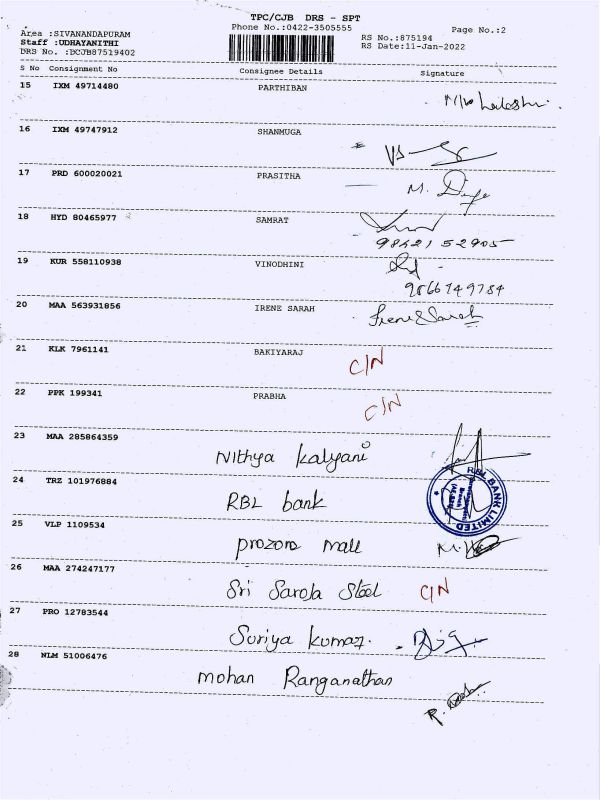 TPC/CJB DRS - SPT
Phone No.:0422-3505555
Page No.:2
Area :SIVANANDAPURAM
Staff :UDHAYANITHI
DRS No. :BCJB87519402
RS No.:875194
RS Date:11-Jan-2022
S No Consignment No Consignee Details Signature
15 IXM 49714480 PARTHIBAN
16 IXM 49747912 SHANMUGA
17 PRD 600020021 PRASITHA
18 HYD 80465977 SAMRAT
98421 52905
19 KUR 558110938 VINODHINI
9866749784
20 MAA 563931856 IRENE SARAH Irene Sarah
21 KLK 7961141 BAKIYARAJ C/N
22 PPK 199341 PRABHA C/N
23 MAA 285864359 Nithya Kalyani
24 TRZ 101976884 RBL bank
RBL BANK LIMITED
25 VLP 1109534 Prozone mall
26 MAA 274247177 Sri Saroja Steel C/N
27 PRO 12783544 Suriya Kumar.
28 NLM 51006476 Mohan Ranganathan